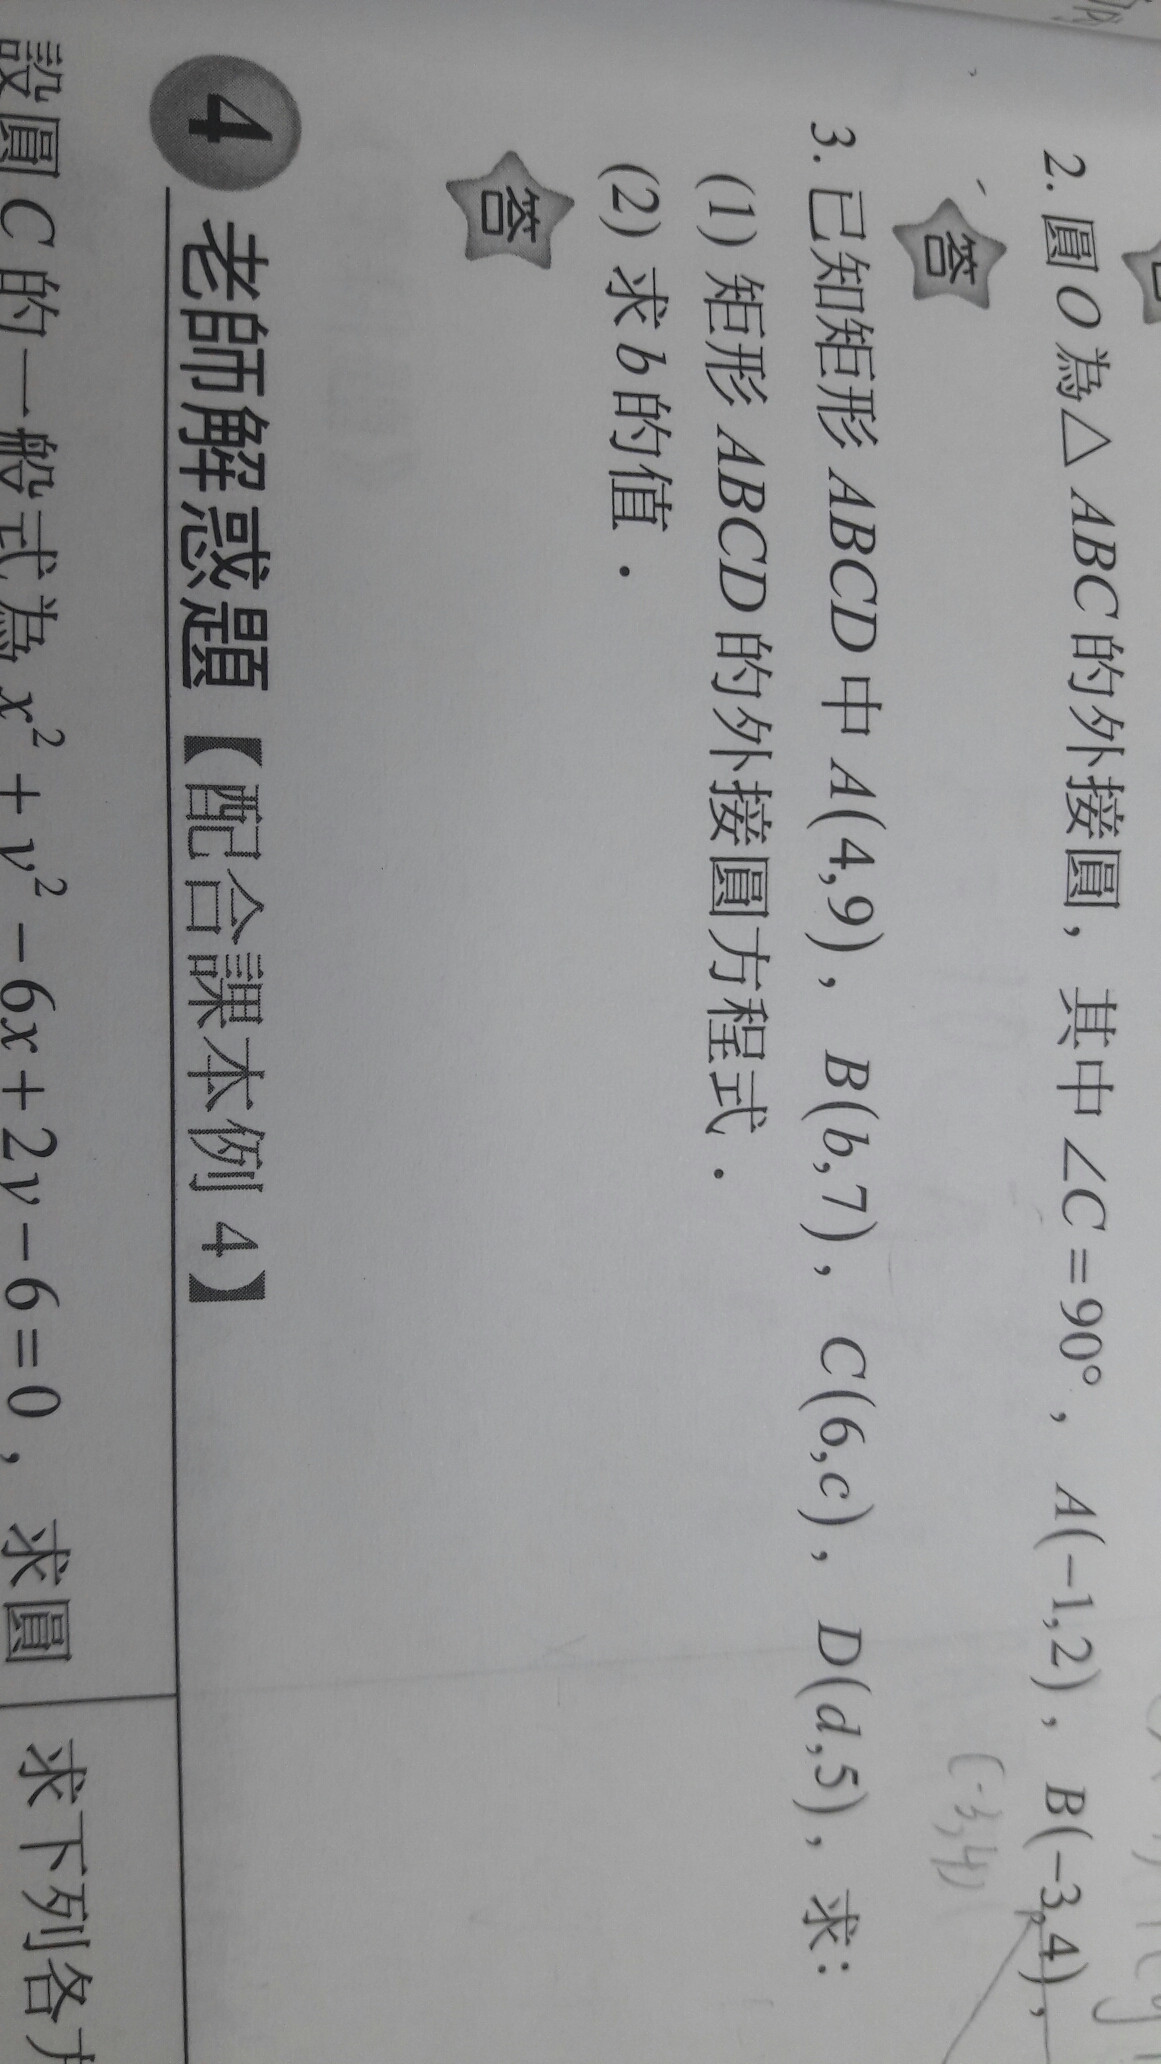 2. 圓 O 為△ ABC 的外接圓，其中∠C=90°，A(−1,2)，B(−3,4)，
答
(-3,4)
3. 已知矩形 ABCD 中 A(4,9)，B(b,7)，C(6,c)，D(d,5)，求：
(1) 矩形 ABCD 的外接圓方程式．
(2) 求 b 的值．
答
4 老師解惑題【配合課本例 4】
設圓 C 的一般式為 x² + y² − 6x + 2y − 6 = 0，求圓
求下列各